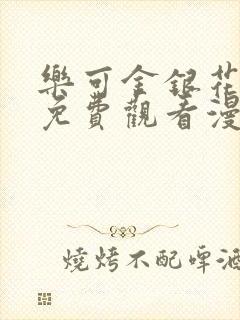 樂可金銀花
免費觀看漫
燒烤不配啤酒